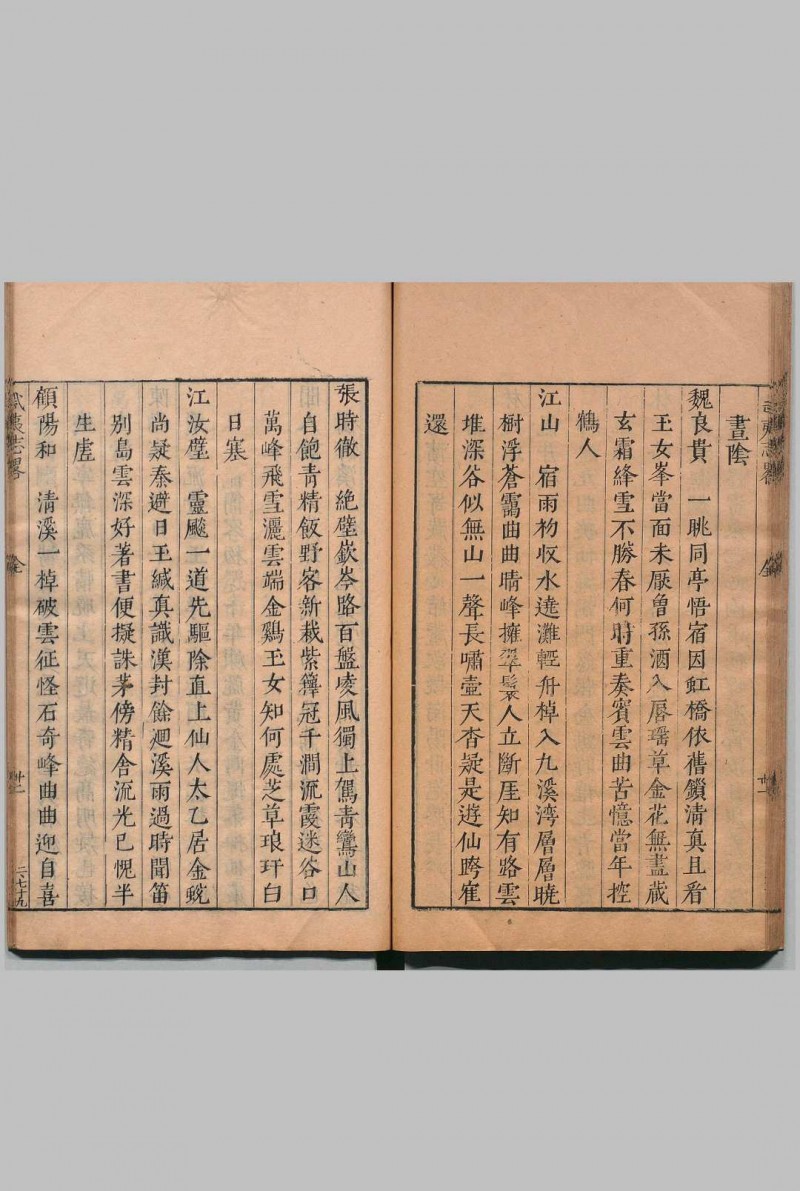 晝陰
魏良貴　一眺同亭悟宿因虹橋依舊鎖清真且看
玉女峯當面未厭曾孫酒入唇瑶草金花無盡藏
玄霜絳雪不勝春何時重奏賓雲曲苦憶當年控
鶴人
江山　宿雨初收水遶灘輕舟棹入九溪湾層層曉
樹浮蒼靄曲曲晴峰擁翠鬟人立斷厓知有路雲
堆深谷似無山一聲長嘯壺天杳疑是遊仙跨寉
還
張時徹　絶壁嶔岑路百盤凌風獨上駕青鸞山人
自飽青精飯野客新裁紫籜冠千澗流霞迷谷口
萬峰飛雪灑雲端金鷄玉女知何處芝草琅玕白
日寒
江汝璧　靈飈一道先驅除直上仙人太乙居金蛻
尚疑秦避日玉緘真識漢封餘廻溪雨過時聞笛
別島雲深好著書便擬誅茅傍精舍流光已愧半
生虗
顧陽和　清溪一棹破雲征怪石奇峰曲曲迎自喜
武夷志畧